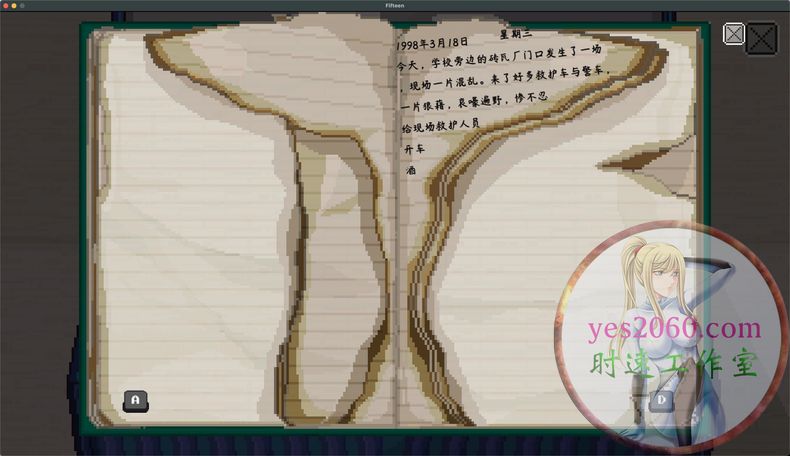 Fifteen
1998年3月18日 星期三
今天，学校旁边的砖瓦厂门口发生了一场
，现场一片混乱。来了好多救护车与警车，
一片狼藉，哀嚎遍野，惨不忍
给现场救护人员
开车
酒
A
D
yes2060.com
时速工作室